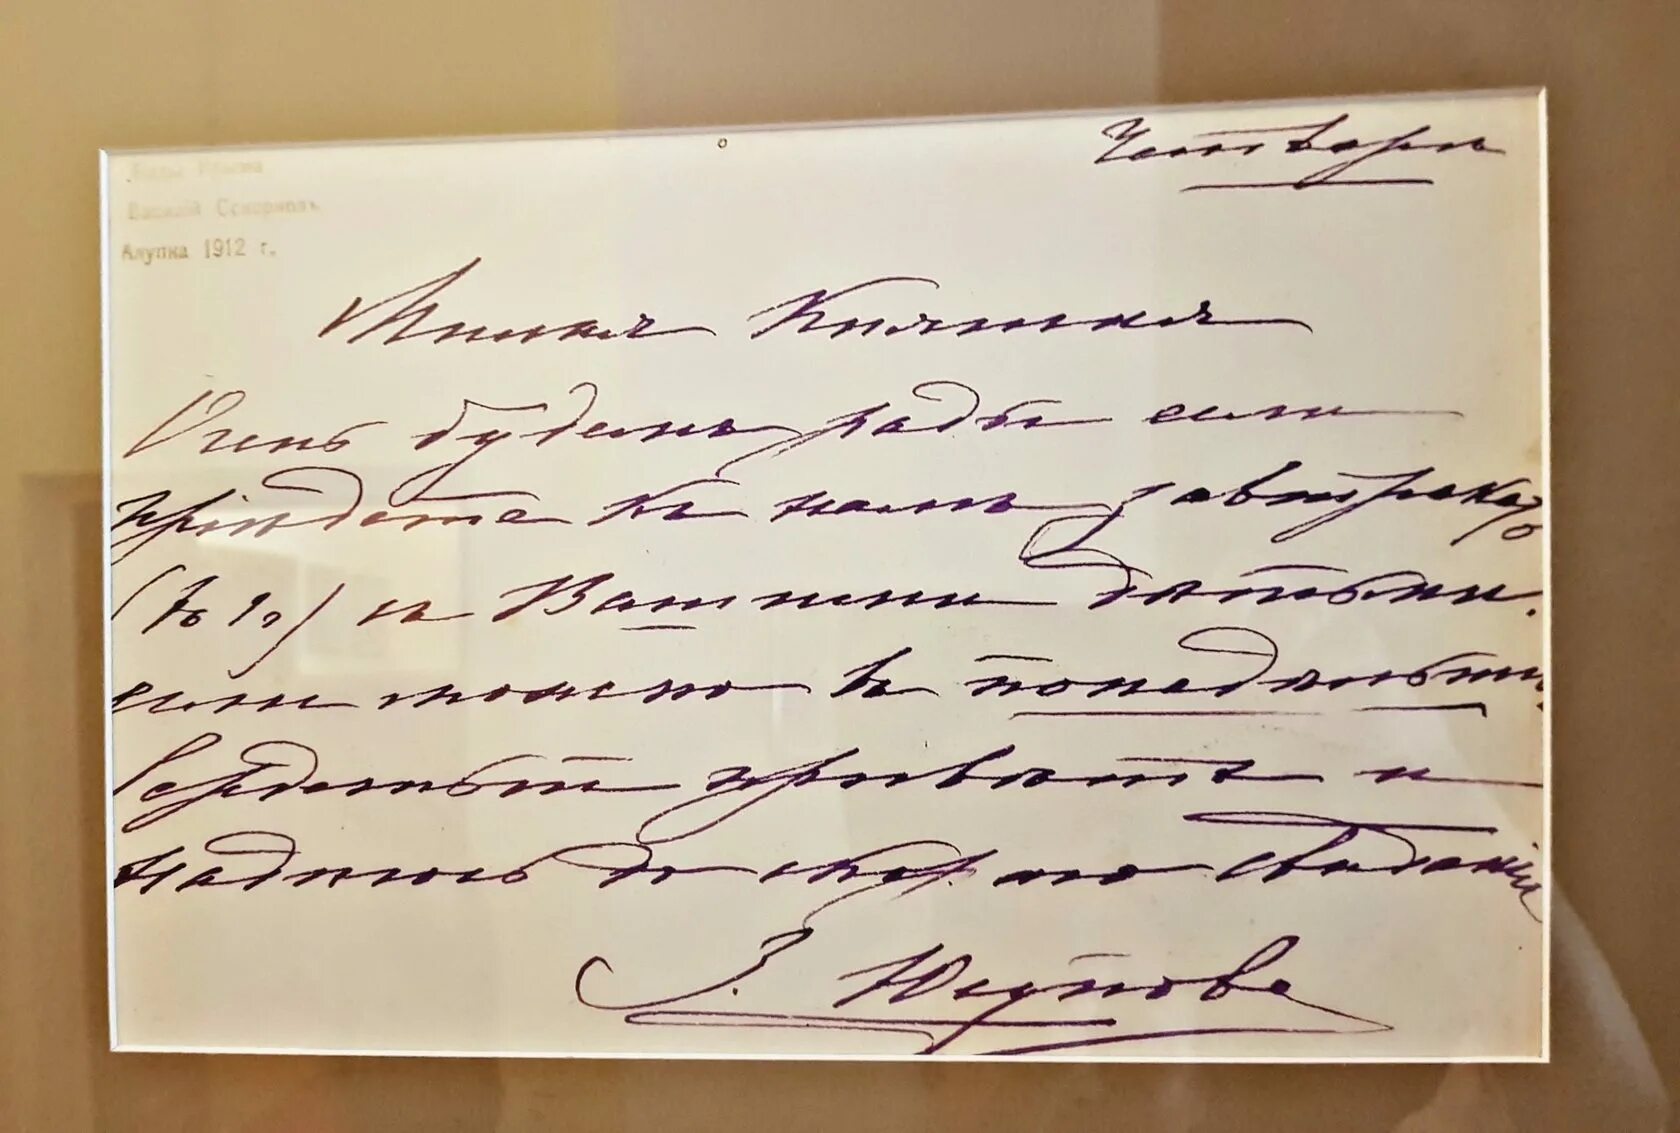 Виды Крыма
Василій Сокорновъ
Алупка 1912 г.
Четвергъ
Милая Княгиня
Очень будемъ рады если
пріѣдете къ намъ завтракать
(въ 1 ч) съ Вашими дѣтьми.
если можно въ понедѣльникъ
Сердечный привѣтъ и
надѣюсь до скораго свиданія
З. Юсупова